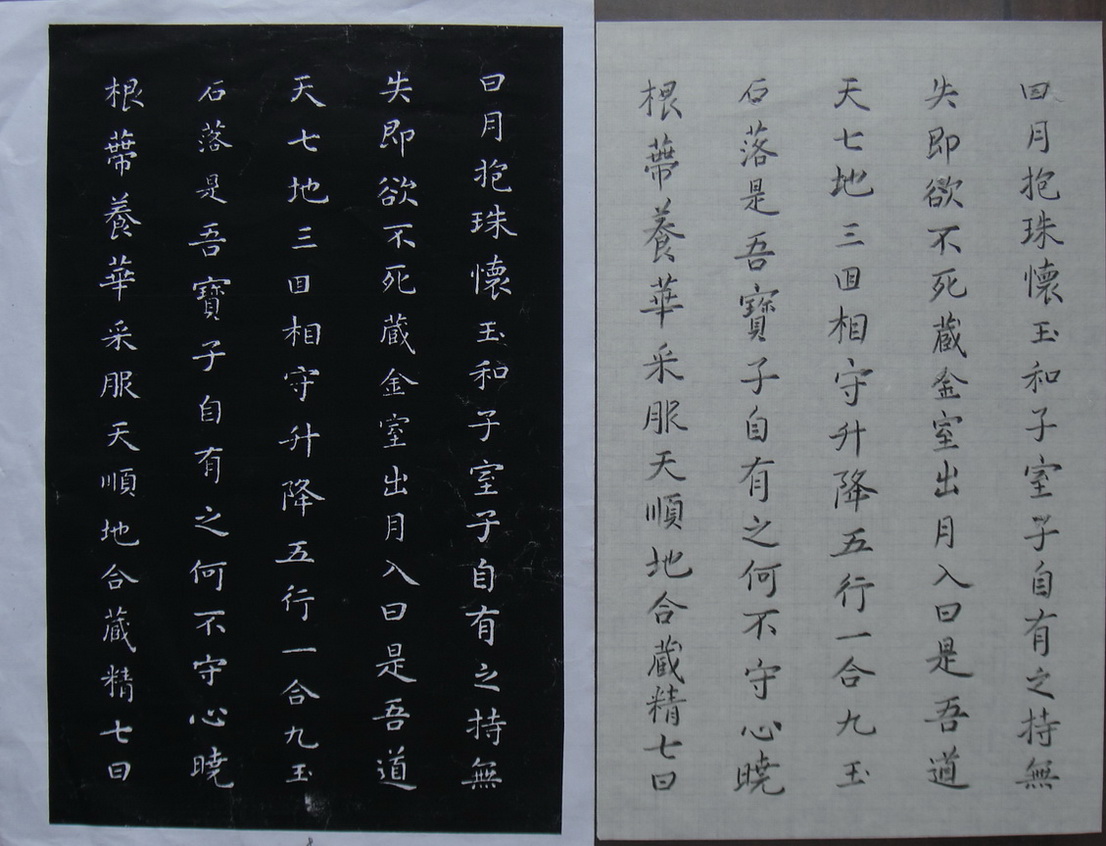 日月抱珠懷玉和子室子自有之持無
失即欲不死蔵金室出月入日是吾道
天七地三回相守升降五行一合九玉
石落是吾寶子自有之何不守心曉
根蔕養華采服天順地合蔵精七日
月抱珠懷玉和子室子自有之持無
失即欲不死蔵金室出月入日是吾道
天七地三回相守升降五行一合九玉
石落是吾寶子自有之何不守心曉
根蔕養華采服天順地合蔵精七日